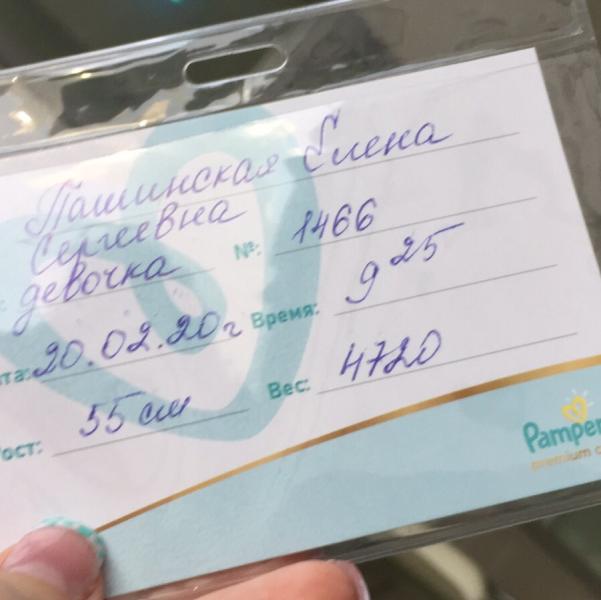 Пашинская Елена
Сергеевна
девочка №: 1466
та: 20.02.20г Время: 9 25
ост: 55 см Вес: 4720
Pamper
premium c